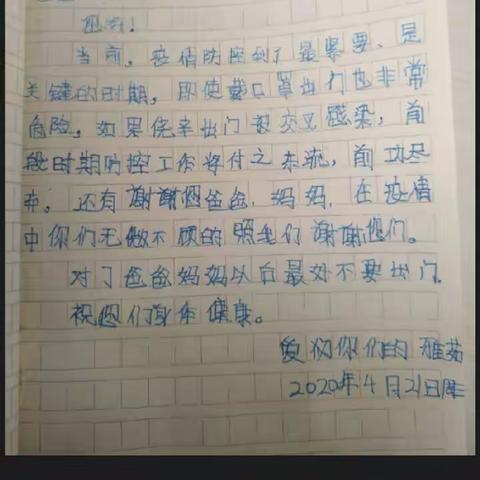 当前，疫情防控到了最紧要、最
关键的时期，即使戴口罩出门也非常
危险。如果侥幸出门被交叉感染，前
段时期防控工作将付之东流，前功尽
弃。还有谢谢您爸爸，妈妈，在疫情
中你们无微不顾的照我们谢谢您们。
对了爸爸妈妈以后最好不要出门。
祝您们身体健康。
你们的雅茹
2020年4月21日